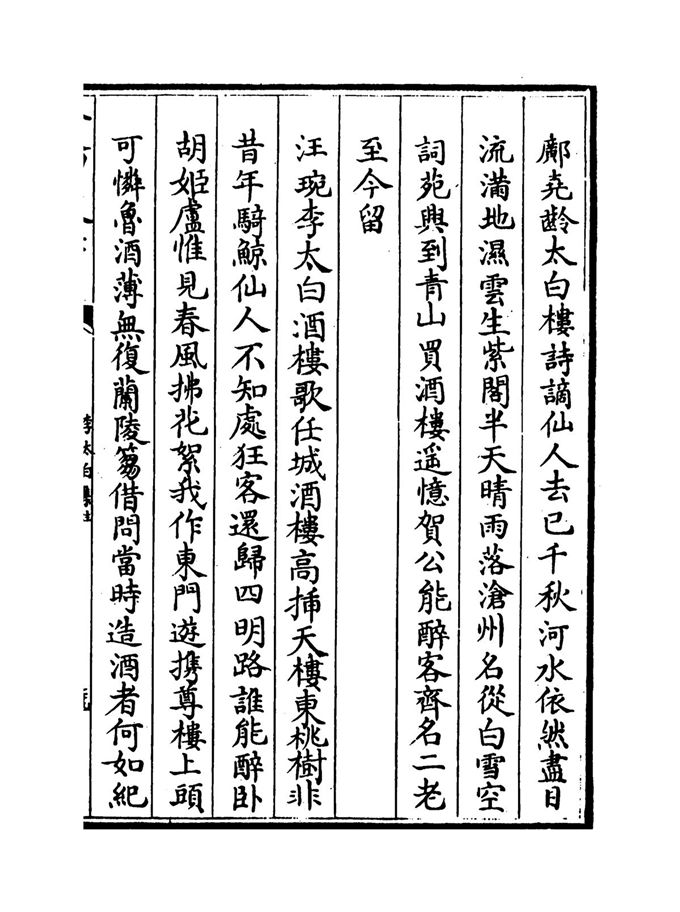 鄺堯齡太白樓詩謫仙人去已千秋河水依然盡日
流滿地濕雲生紫閣半天晴雨落滄州名從白雪空
詞苑興到青山買酒樓遥憶賀公能醉客齊名二老
至今留
汪琬李太白酒樓歌任城酒樓高揷天樓東桃樹非
昔年騎鯨仙人不知處狂客還歸四明路誰能醉卧
胡姬盧惟見春風拂花絮我作東門遊携尊樓上頭
可憐魯酒薄無復蘭陵芻借問當時造酒者何如紀
李太白集注